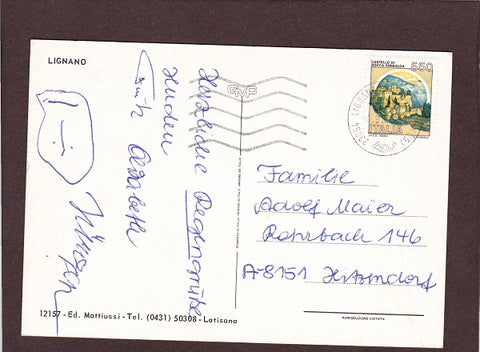 LIGNANO
Herzliche Regengrüße
senden
Elisabeth
12157 - Ed. Mattiussi - Tel. (0431) 50308 - Latisana
CASTELLO DI
ROCCA SINIBALDA
550
ITALIA
33054 LIGNANO
Familie
Adolf Maier
Rohrbach 146
A-8151 Hitzendorf
RIPRODUZIONE VIETATA